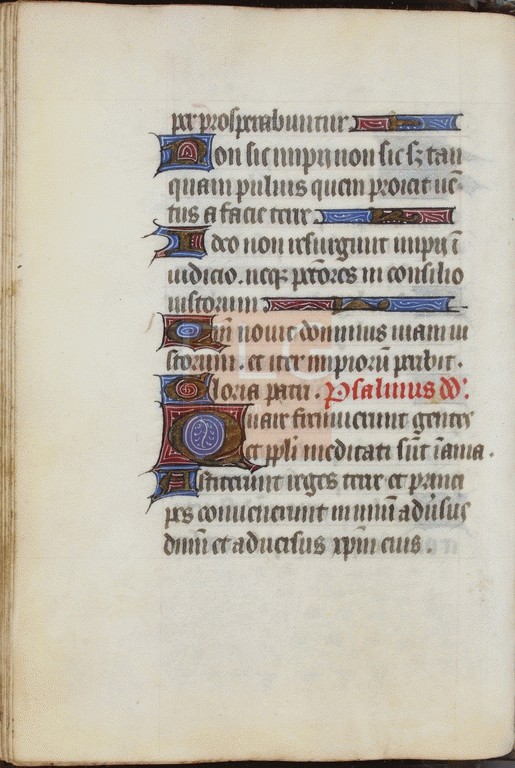 per prosperabuntur
Non sic impii non sic sꝫ tan
quam puluis quem proicit ue-
tus a facie terre
Ideo non resurgunt impii ī
iudicio. neqꝫ pctores in consilio
iustorum
Qm̄ nouit dominus uiam iu
storum. et iter impiorū peribit.
Gloria patri. Psalmus dd'.
Quare fremuerunt gentes
et ppl̄i meditati sūt īania.
Astiterunt reges terre et princi
pes conuenerunt in unū adūsus
dnm̄ et aduersus xp̄m eius.